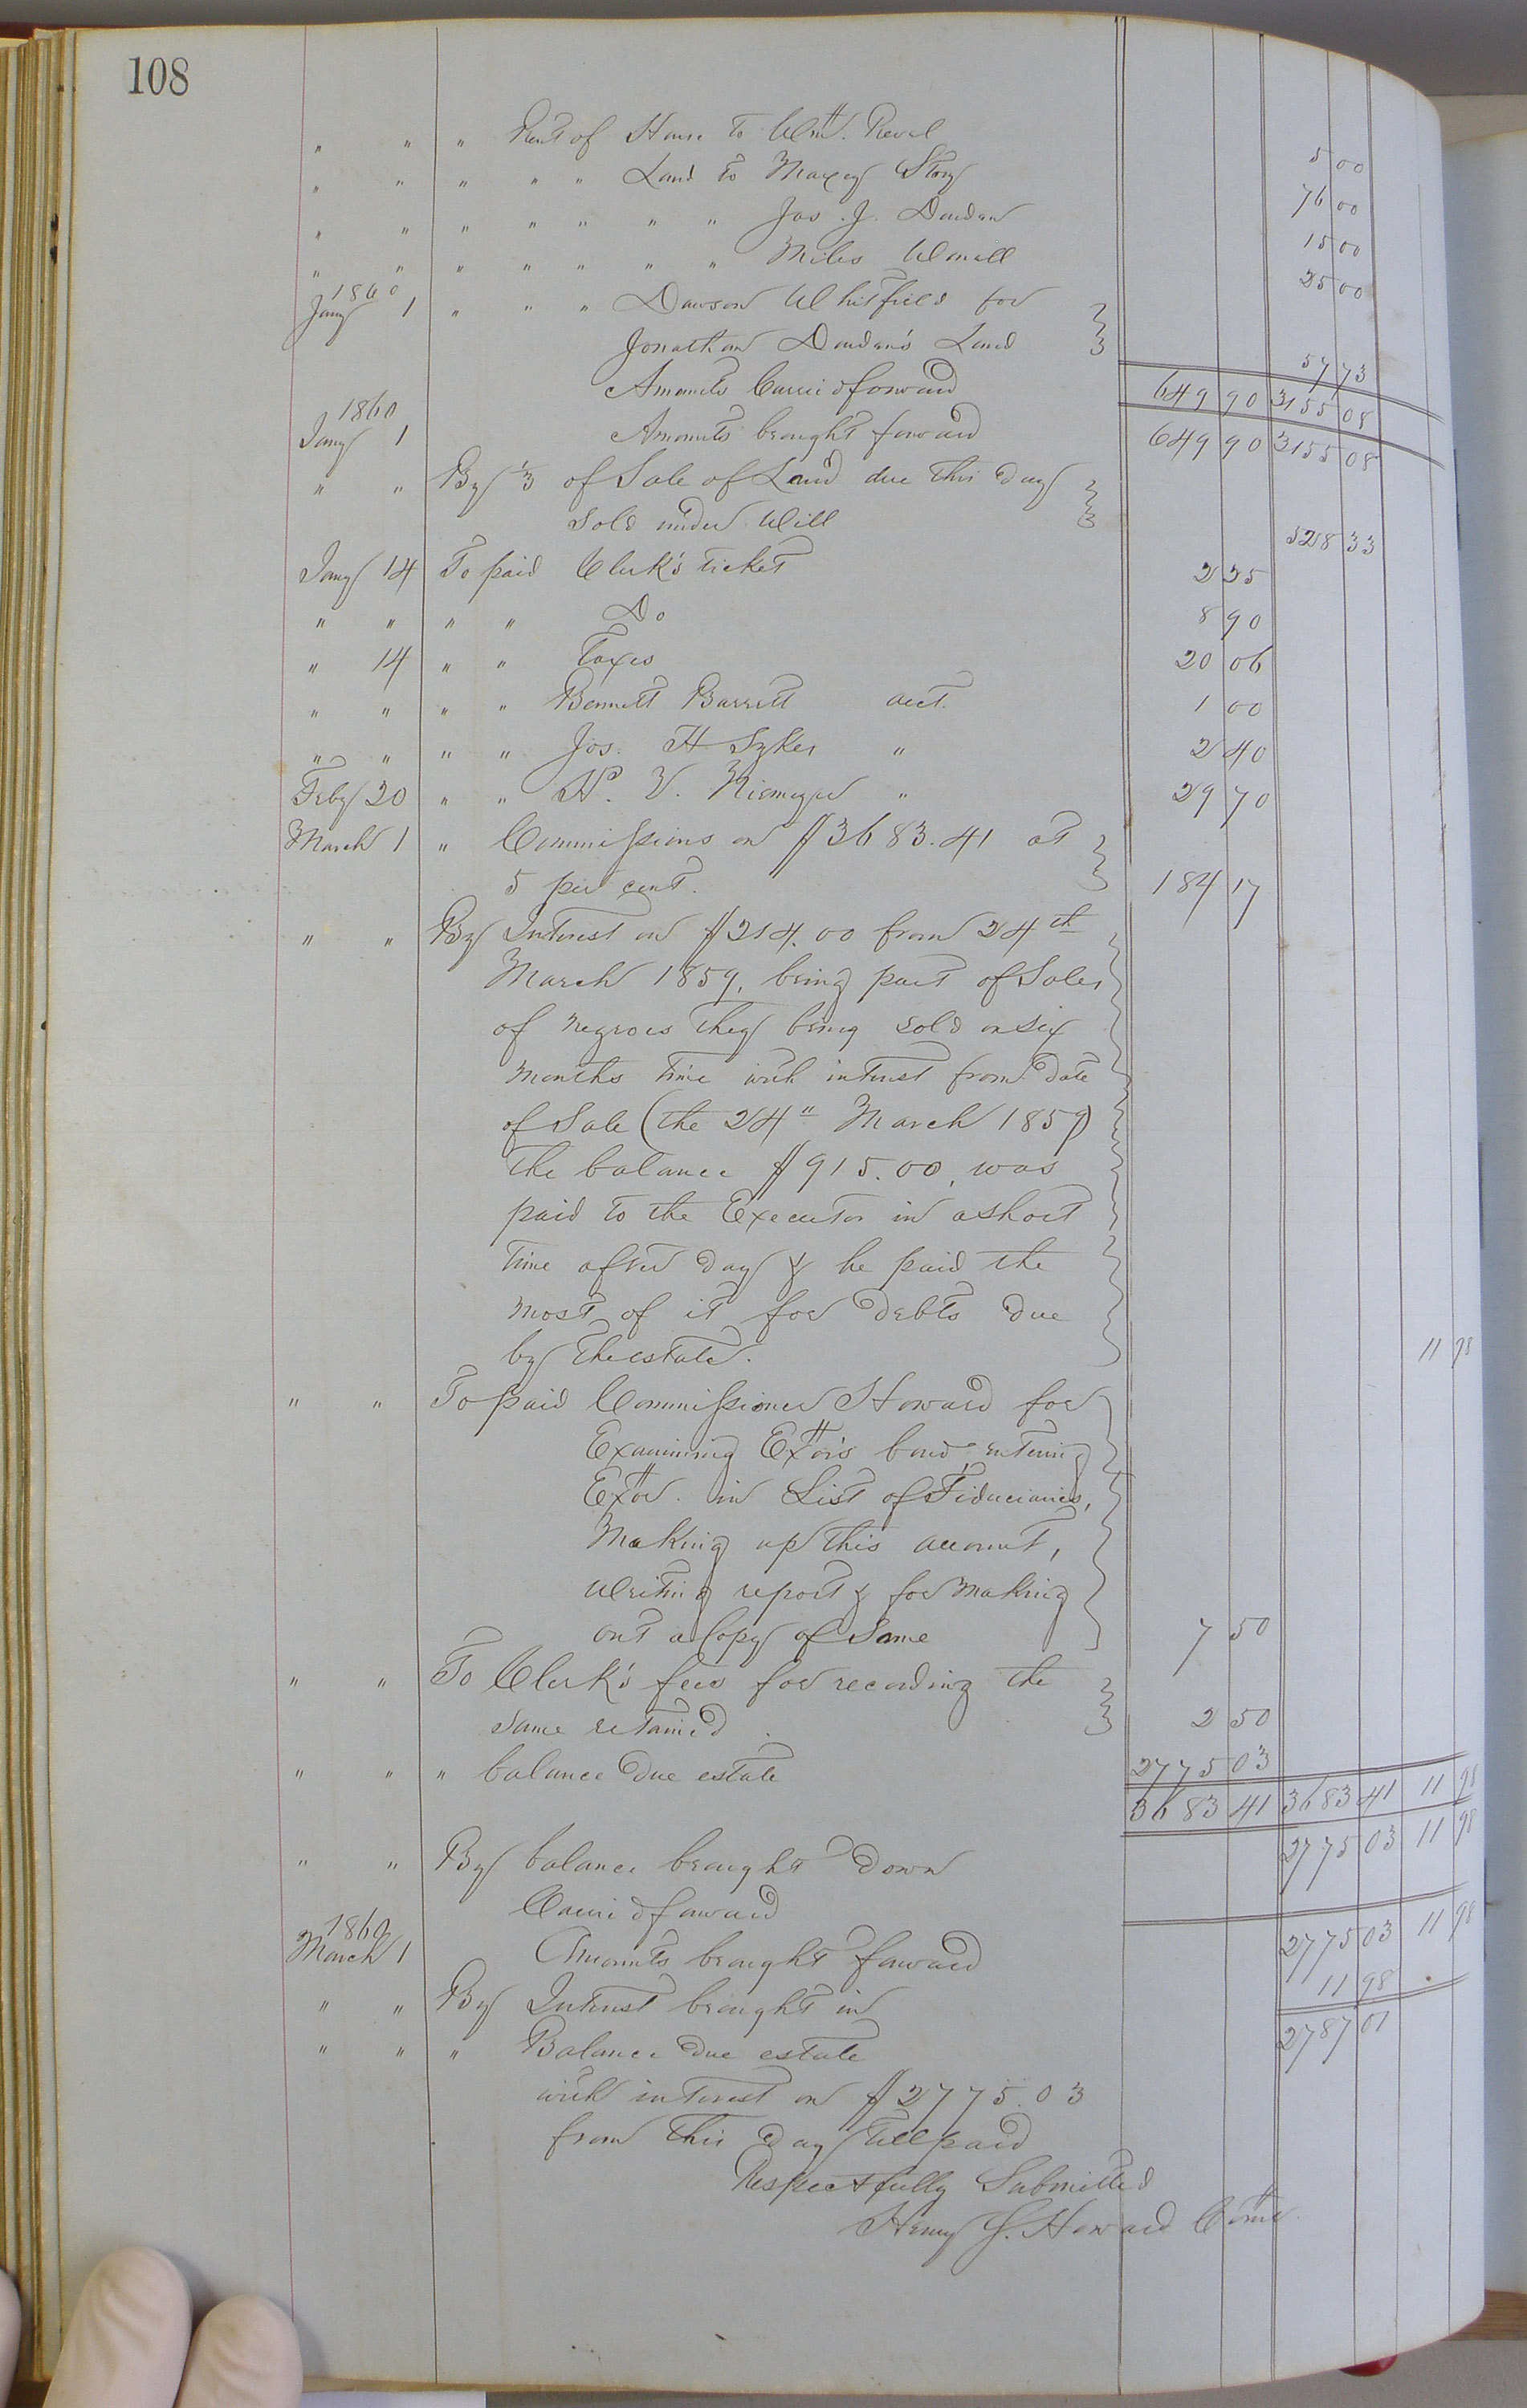 108
" " " Rent of House to Wm. Revel 5 00
" " " " " Land to Maxey Story 76 00
" " " " " " " Jos. J. Darden 15 00
" " " " " " " Miles Womill 25 00
1860
Jany 1 " " " Dawson Whitfield for
Jonathan Darden's Land 57 73
Amounts Carried forward 649 90 3155 08
1860
Jany 1 Amounts brought forward 649 90 3155 08
" " By 1/3 of Sale of Land due this day
sold under Will 528 33
Jany 14 To paid Clerk's ticket 2 25
" " " " Do 8 90
" 14 " " Taxes 20 06
" " " " Bennett Barrett acct. 1 00
" " " " Jos. H Sykes " 2 40
Feby 20 " " H. V. Niemeyer " 29 70
March 1 " Commissions on $3683.41 at
5 per cent. 184 17
" " By Interest on $214.00 from 24th
March 1859, being part of Sales
of negroes they being sold on six
months time with interest from date
of Sale (the 24" March 1859)
the balance $915.00, was
paid to the Executor in a short
time after day & he paid the
most of it for debts due
by the estate. 11 98
" " To paid Commissioner Howard for
Examining Exor's bond, entering
Exor. in List of Fiduciaries,
Making up this account,
Writing report & for making
out a Copy of Same 7 50
" " To Clerk's fees for recording the
same retained. 2 50
" " " balance due estate 2775 03
3683 41 3683 41 11 98
" " By balance brought down 2775 03 11 98
Carried forward
1860
March 1 Amounts brought forward 2775 03 11 98
" " By Interest brought in 11 98
" " " Balance due estate 2787 01
with interest on $2775.03
from this day till paid
Respectfully Submitted
Henry J. Howard Comr.